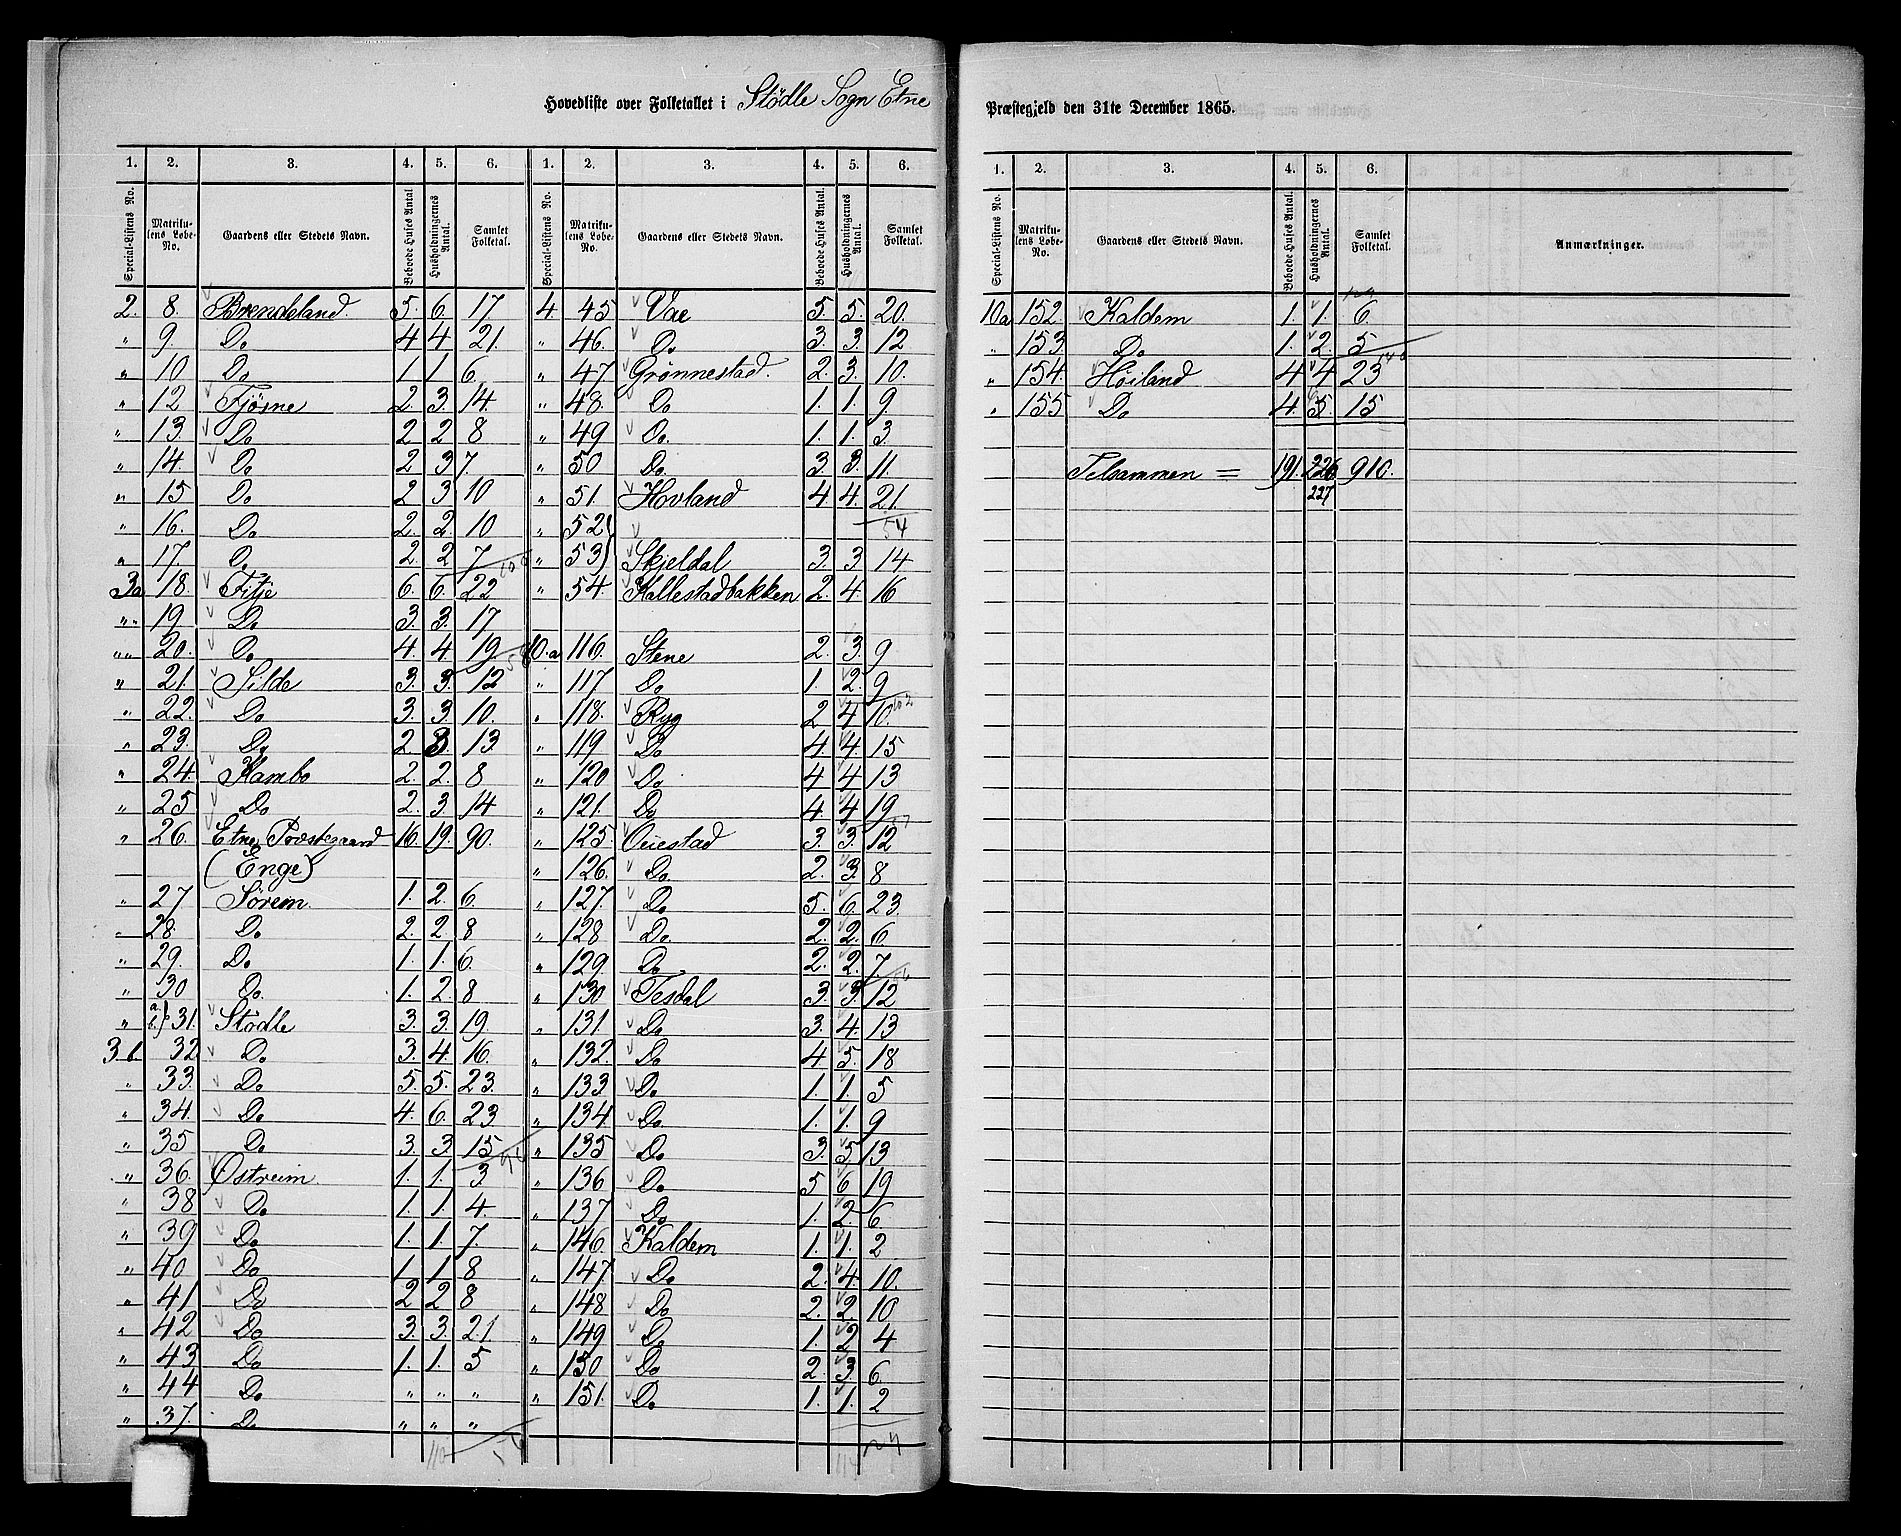 Hovedliste over Folketallet i Stödle Sogn Etne
Præstegjeld den 31te December 1865.
1. 2. 3. 4. 5. 6. 1. 2. 3. 4. 5. 6.
Special-Listens No. Matrikulens Løbe-No. Gaardens eller Stedets Navn. Beboede Huses Antal. Husholdningernes Antal. Samlet Folketal. Special-Listens No. Matrikulens Løbe-No. Gaardens eller Stedets Navn. Beboede Huses Antal. Husholdningernes Antal. Samlet Folketal.
2. 8. Brendeland 5. 6. 17
" 9. Do 4 4 21.
" 10 Do 1 1 6.
" 12 Fjösne 2. 3. 14.
" 13. Do 2 2 8
" 14. Do 2 3 7.
" 15 Do 2 3 10
" 16. Do 2. 2. 10
" 17. Do 2. 2 7
3a 18. Fitje 6. 6. 22
"" 19 Do 3. 3. 17
"" 20. Do 4. 4 19
" 21. Silde 3. 3. 12
" 22. Do 3. 3. 10.
" 23. Do 2. 3. 13.
" 24. Kambo 2. 2. 8
" 25 Do 2. 3 14
" 26. Etne Præstegaard 16. 19. 90.
(Enge)
" 27 Sörem 1. 2. 6.
" 28. Do 2. 2 8
" 29. Do 1. 1. 6.
" 30 Do. 1. 2 8
" 31. Stödle 3. 3. 19.
3b 32 Do 3. 4. 16.
" 33. Do 5. 5. 23.
" 34. Do 4. 6. 23
" 35 Do 3. 3. 15
" 36. Østreim 1. 1. 3
" 38 Do 1. 1. 4.
" 39 Do 1. 1 7.
" 40 Do 1 1 8
" 41 Do 2 2 8
" 42 Do 3. 3. 21.
" 43 Do 1. 1. 5
" 44 Do " " "
" 37. Do " " "
4. 45 Vae 5. 5. 20.
" 46. Do 3. 3. 12
" 47 Grönnestad. 2. 3. 10.
" 48. Do 1. 1. 9.
" 49 Do. 1. 1. 3.
" 50 Do. 3. 3. 11.
" 51. Hovland 4. 4. 21.
" 52 54
" 53 Skjeldal 3. 3 14
" 54. Kallestadbakken 2. 4. 16
10.a 116. Stene 2. 3. 9
" 117 Do 1. 2. 9
" 118. Ryg 2 4 10.
" 119 Do 4. 4. 15
" 120 Do 4 4 13
" 121. Do 4 4 19
" 125. 3. 3. 12
" 126. Do. 2. 3. 8
" 127. Do 5. 6. 23.
" 128 Do. 2. 2. 6
" 129. Do 2. 2. 7.
" 130 Tesdal 3. 3. 12
" 131 Do 3. 4. 13
" 132. Do 4 5. 18
" 133 Do 1. 1. 5
" 134 Do 1. 1. 9
" 135 Do 3. 5. 13
" 136 Do 5 6 19
" 137 Do 1. 2. 6
" 146. Kaldem 1. 1. 2
" 147 Do 2. 4. 10.
" 148 Do 2. 2. 10
" 149 Do 1. 2 4
" 150 Do 2. 3. 6.
" 151. Do 1. 1. 2
1. 2. 3. 4. 5. 6.
Special-Listens No. Matrikulens Løbe-No. Gaardens eller Stedets Navn. Beboede Huses Antal. Husholdningernes Antal. Samlet Folketal. Anmærkninger.
10a 152. Kaldem 1. 1. 6.
" 153 Do 1. 2. 5
" 154. Höiland 4 4 23
" 155 Do 4. 5. 15
Tilsammen = 191. 226 910.
227